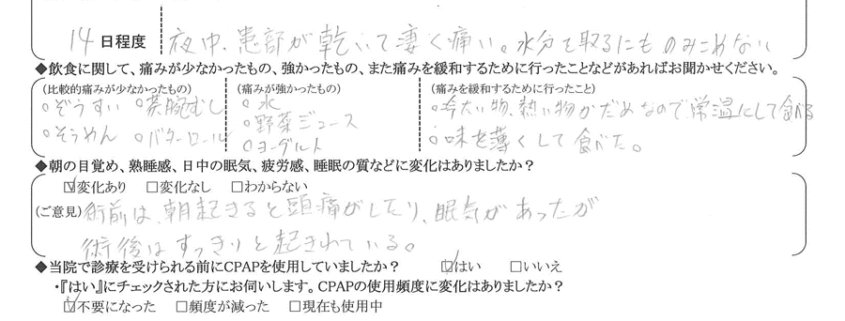 14 日程度 夜中、患部が乾いて凄く痛い。水分を取るにものみこめない
◆飲食に関して、痛みが少なかったもの、強かったもの、また痛みを緩和するために行ったことなどがあればお聞かせください。
(比較的痛みが少なかったもの) (痛みが強かったもの) (痛みを緩和するために行ったこと)
○ぞうすい ○茶腕むし ○水 ○冷たい物、熱い物がだめなので、常温にして食べる
○そうめん ○バターロール ○野菜ジュース ○味を薄くして食べた。
○ヨーグルト
◆朝の目覚め、熟睡感、日中の眠気、疲労感、睡眠の質などに変化はありましたか?
☑変化あり □変化なし □わからない
(ご意見) 術前は、朝起きると頭痛がしたり、眠気があったが
術後はすっきりと起きれている。
◆当院で診療を受けられる前にCPAPを使用していましたか? ☑はい □いいえ
・『はい』にチェックされた方にお伺いします。CPAPの使用頻度に変化はありましたか?
☑不要になった □頻度が減った □現在も使用中